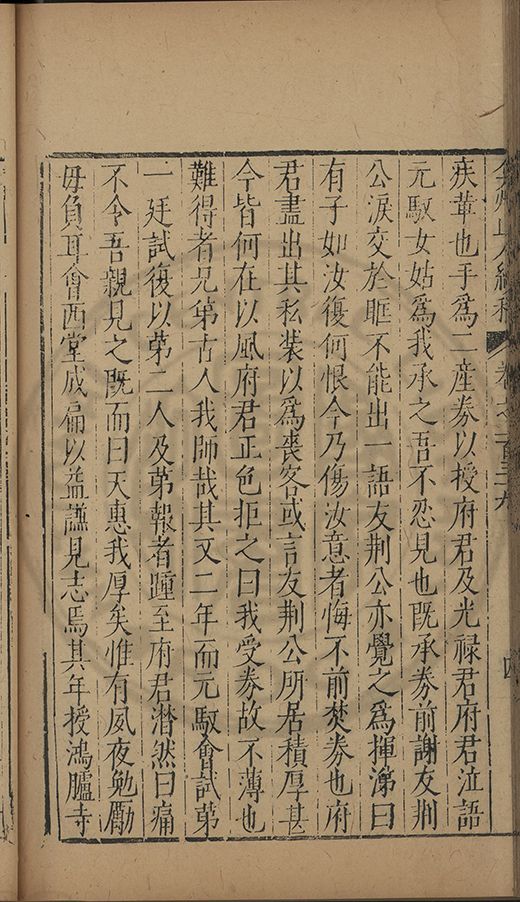 弇州山人續稿 卷之一百三十九 四
疾革也手爲二産券以授府君及光禄君府君泣語
元馭女姑爲我承之吾不忍見也既承券前謝友荆
公淚交於眶不能出一語友荆公亦覺之爲揮涕曰
有子如汝復何恨今乃傷汝意者悔不前焚券也府
君盡出其私装以爲喪客或言友荆公所居積厚甚
今皆何在以風府君正色拒之曰我受券故不薄也
難得者兄弟古人我師哉其又二年而元馭會試第
一廷試復以第二人及第報者踵至府君潸然曰痛
不令吾親見之既而曰天惠我厚矣惟有夙夜勉勵
毋負耳會西堂成扁以益謙見志焉其年授鴻臚寺